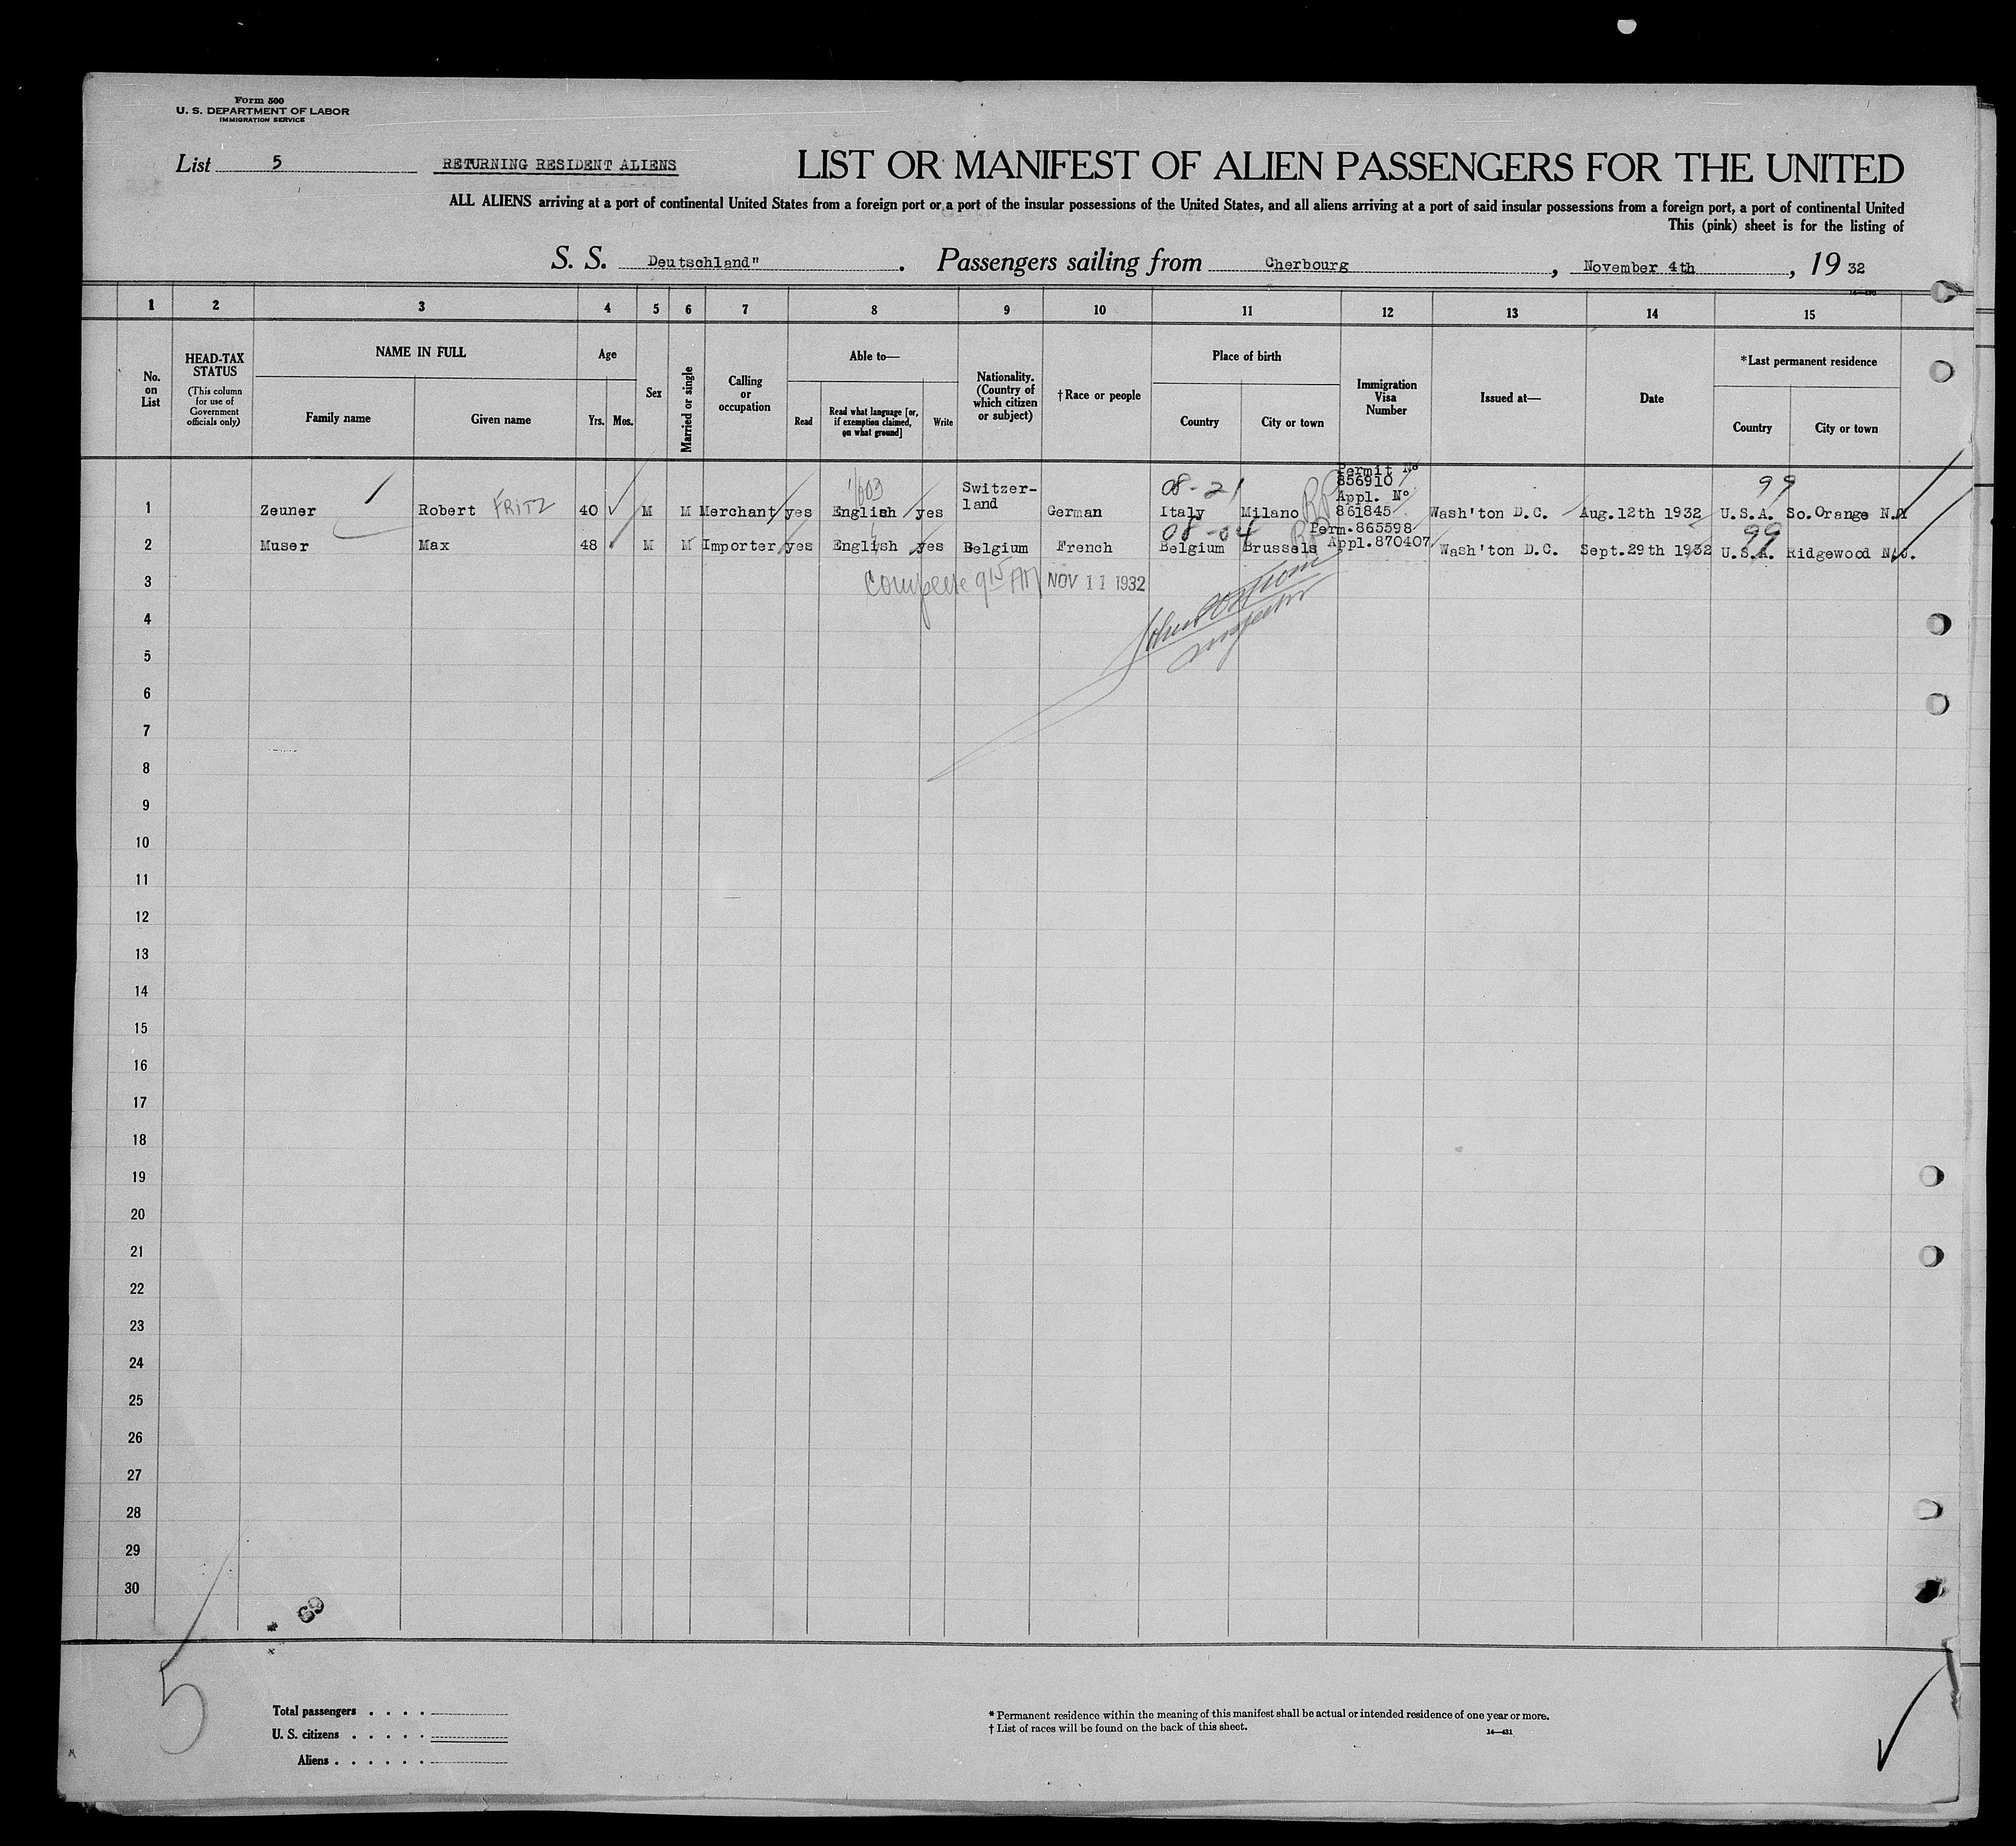 Form 500
U. S. DEPARTMENT OF LABOR
IMMIGRATION SERVICE
List 5
RETURNING RESIDENT ALIENS
LIST OR MANIFEST OF ALIEN PASSENGERS FOR THE UNITED
ALL ALIENS arriving at a port of continental United States from a foreign port or a port of the insular possessions of the United States, and all aliens arriving at a port of said insular possessions from a foreign port, a port of continental United
This (pink) sheet is for the listing of
S. S. Deutschland" . Passengers sailing from Cherbourg , November 4th , 19 32
1 2 3 4 5 6 7 8 9 10 11 12 13 14 15
No. on List
HEAD-TAX STATUS
(This column for use of Government officials only)
NAME IN FULL
Family name Given name
Age
Yrs. Mos.
Sex
Married or single
Calling or occupation
Able to—
Read
Read what language [or, if exemption claimed, on what ground]
Write
Nationality. (Country of which citizen or subject)
†Race or people
Place of birth
Country City or town
Immigration Visa Number
Issued at—
Date
*Last permanent residence
Country City or town
1 Zeuner Robert FRITZ 40 M M Merchant yes English yes Switzer-land German 08-21 Italy Milano RP Permit No 856910 Appl. No 861845 Wash'ton D.C. Aug.12th 1932 99 U.S.A. So.Orange N.J
2 Muser Max 48 M M Importer yes English yes Belgium French 08-04 Belgium Brussels RP Perm.865598 Appl.870407 Wash'ton D.C. Sept.29th 1932 99 U.S.A. Ridgewood N.J.
3 NOV 11 1932
4
5
6
7
8
9
10
11
12
13
14
15
16
17
18
19
20
21
22
23
24
25
26
27
28
29
30
69
5
Total passengers . . . .
U. S. citizens . . . . .
Aliens . . . . . .
* Permanent residence within the meaning of this manifest shall be actual or intended residence of one year or more.
† List of races will be found on the back of this sheet.
14—431